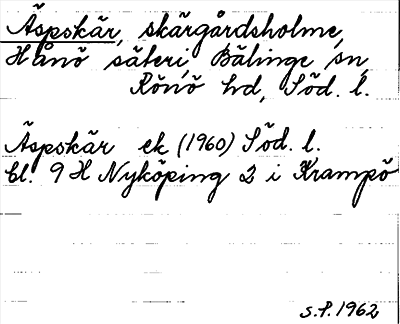 Äspskär, skärgårdsholme,
Hånö säteri, Bälinge sn,
Rönö hd, Söd. l.
Äspskär ek (1960) Söd. l.
bl. 9 H Nyköping 2 i Krampö
S.P. 1962